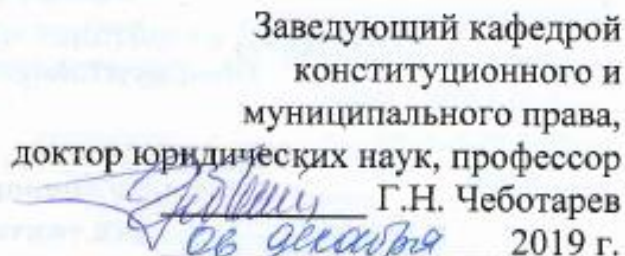 Заведующий кафедрой
конституционного и
муниципального права,
доктор юридических наук, профессор
Г.Н. Чеботарев
06 декабря 2019 г.